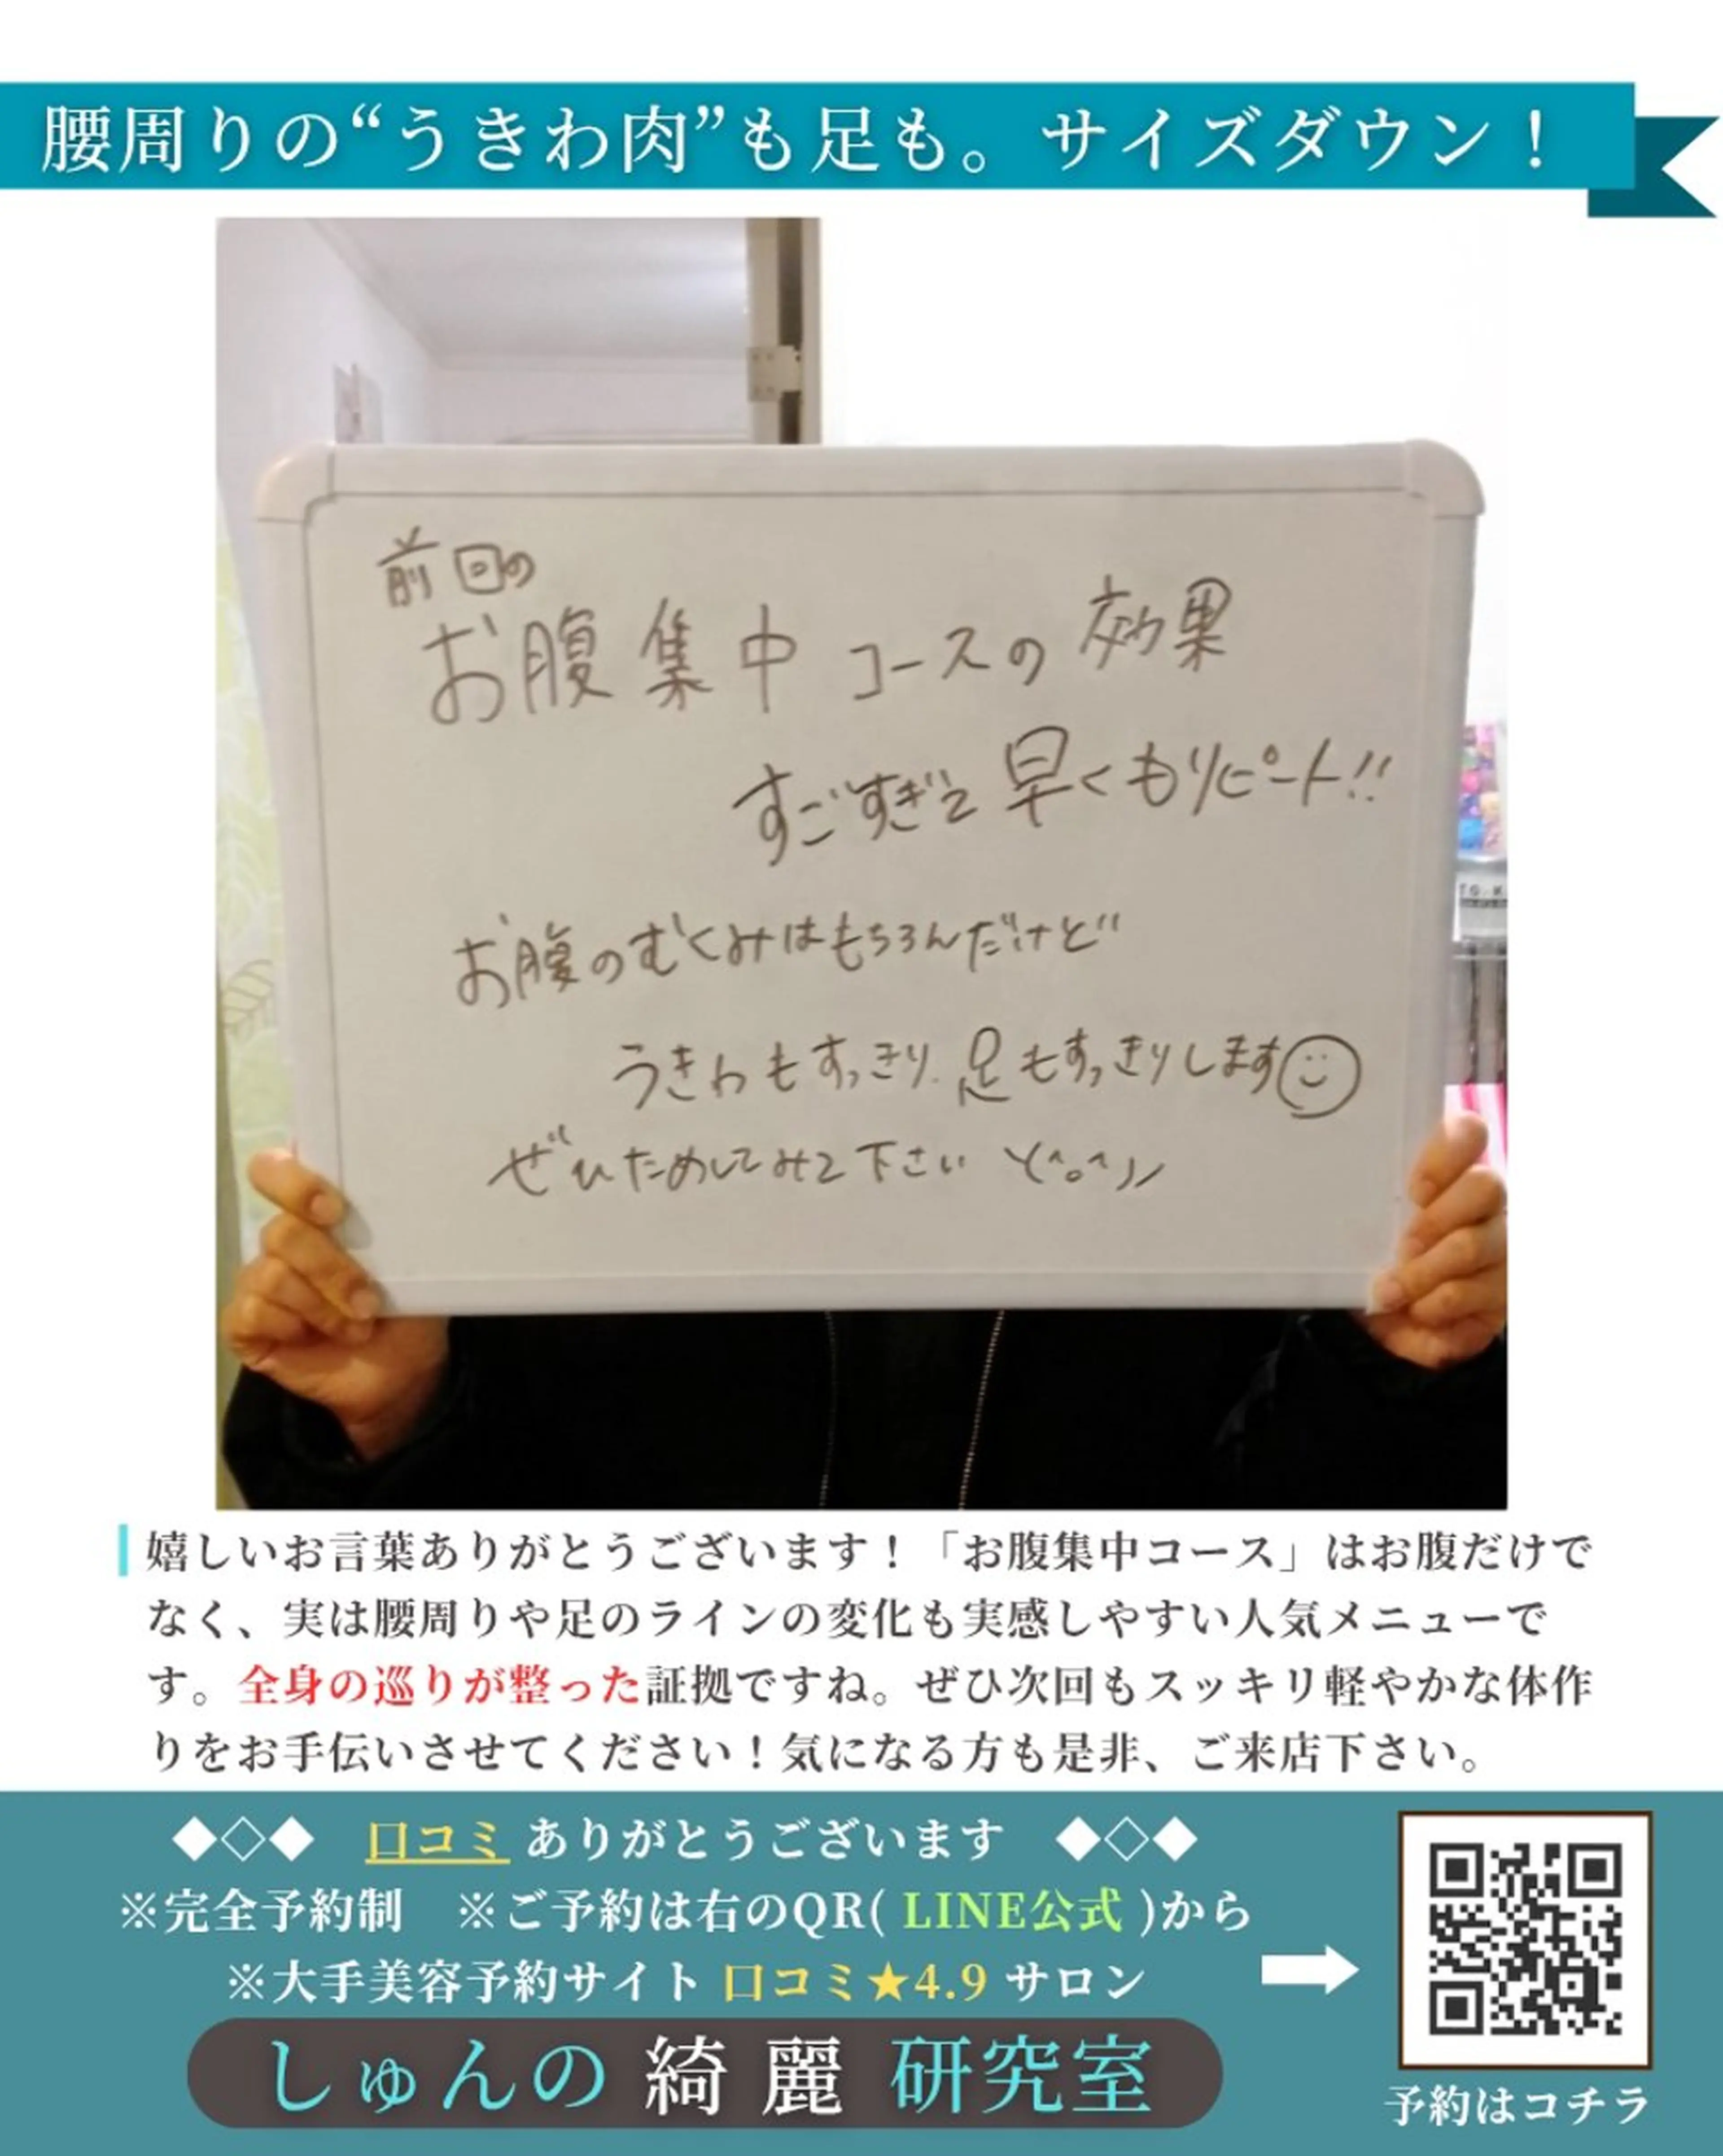 腰周りの“うきわ肉”も足も。サイズダウン！
前回の
お腹集中コースの効果
すごすぎて早くもリピート!!
お腹のむくみはもちろんだけど
うきわもすっきり.足もすっきりします
ぜひためしてみて下さい ヽ(^o^)ノ
嬉しいお言葉ありがとうございます！「お腹集中コース」はお腹だけで
なく、実は腰周りや足のラインの変化も実感しやすい人気メニューで
す。全身の巡りが整った証拠ですね。ぜひ次回もスッキリ軽やかな体作
りをお手伝いさせてください！気になる方も是非、ご来店下さい。
◆◇◆ 口コミ ありがとうございます ◆◇◆
※完全予約制 ※ご予約は右のQR( LINE公式 )から
※大手美容予約サイト 口コミ★4.9 サロン
しゅんの 綺麗 研究室
予約はコチラ